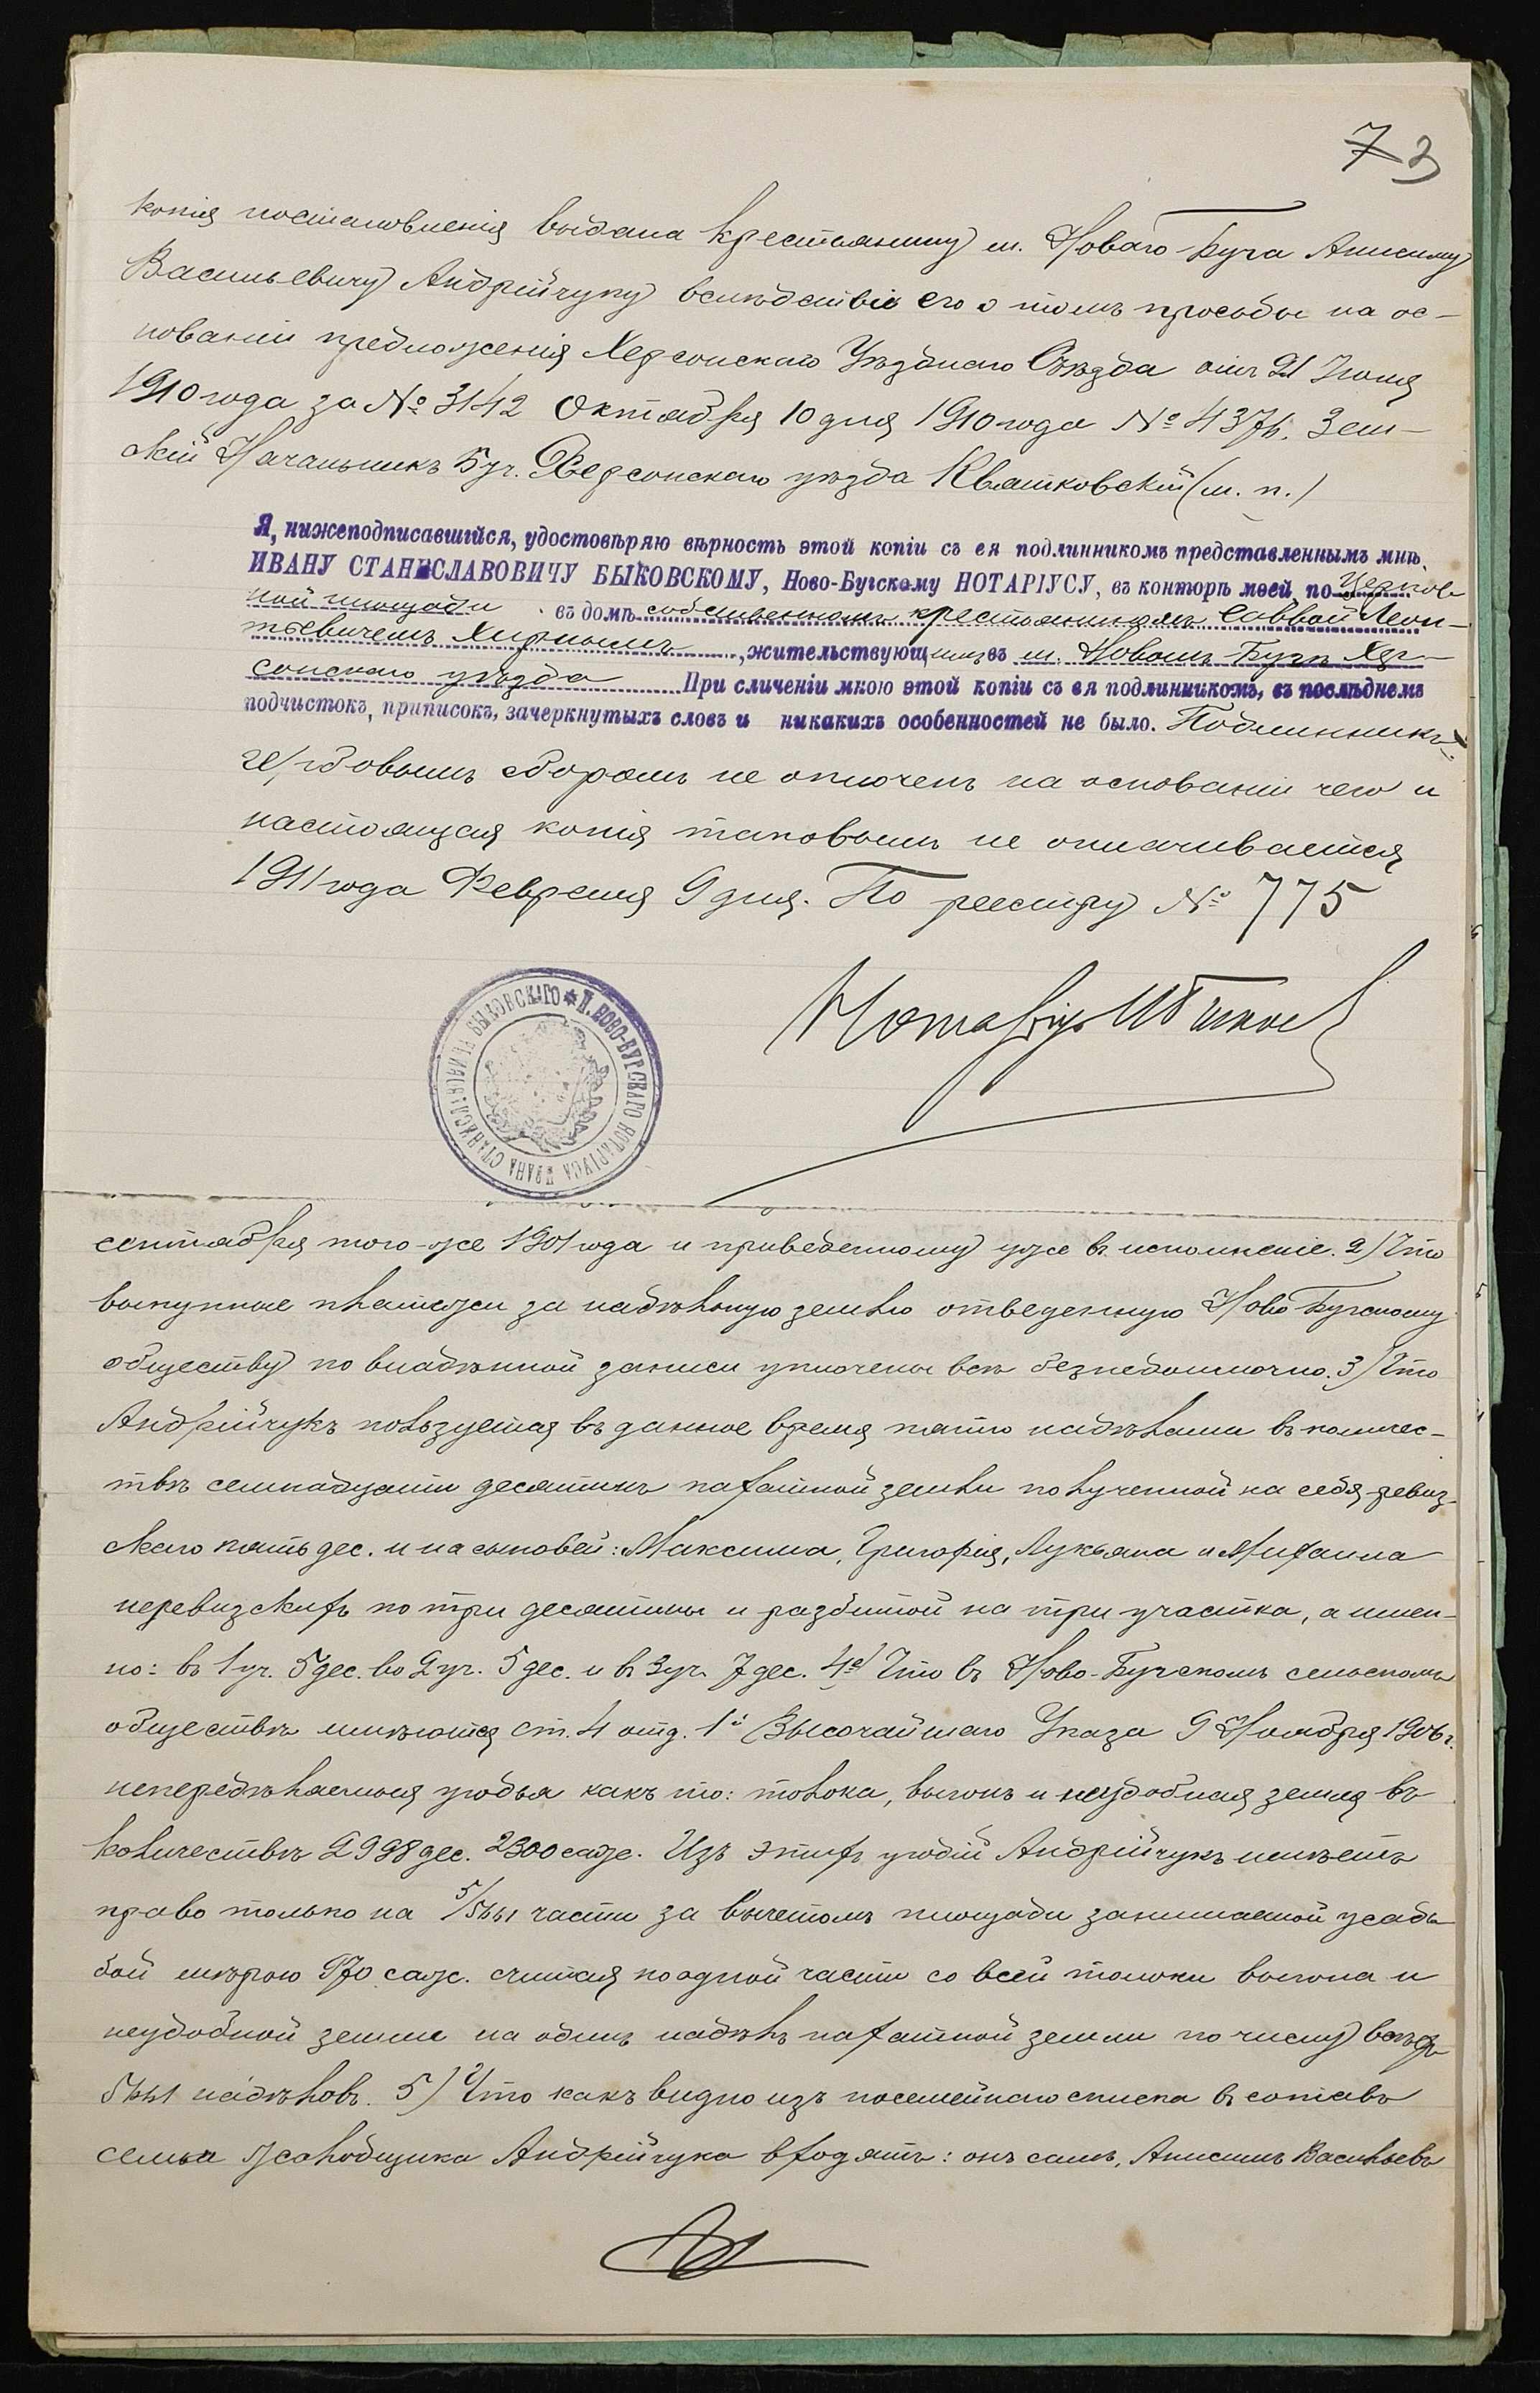 7 3
копія постановленія выдана крестьянину м. Новаго-Буга Анисиму
Васильевичу Андрійчуку вслѣдствіе его о томъ просьбы на ос-
нованіи предложенія Херсонскаго Уѣзднаго Съѣзда отъ 21 Іюня
1910 года за № 3142 Октября 10 дня 1910 года № 4376. Зем-
скій Начальникъ 5 уч. Херсонскаго уѣзда Квятковскій (м. п.)
Я, нижеподписавшійся, удостовѣряю вѣрность этой копіи съ ея подлинникомъ представленнымъ мнѣ,
ИВАНУ СТАНИСЛАВОВИЧУ БЫКОВСКОМУ, Ново-Бугскому НОТАРІУСУ, въ конторѣ моей, по Церков-
ной площади въ домѣ собственномъ крестьяниномъ Саввой Леон-
тьевичемъ Хирнымъ, жительствующимъ въ м. Новомъ-Бугѣ Хер-
сонскаго уѣзда При сличеніи мною этой копіи съ ея подлинникомъ, въ послѣднемъ
подчистокъ, приписокъ, зачеркнутыхъ словъ и никакихъ особенностей не было. Подлинникъ
гербовымъ сборомъ не оплоченъ на основаніи чего и
настоящая копія таковымъ не оплачивается
1911 года Февраля 9 дня. По реестру № 775
Нотаріусъ
* П. НОВО-БУГСКАГО НОТАРІУСА ИВАНА СТАНИСЛАВОВИЧА БЫКОВСКАГО
сентября того-же 1901 года и приведенному уже въ исполненіе. 2) Что
выкупные платежи за надѣльную землю отведенную Ново-Бугскому
обществу по владѣнной записи уплочены всѣ безнедоимочно. 3) Что
Андрійчукъ пользуется въ данное время пятью надѣлами въ количес-
твѣ семнадцати десятинъ пахатной земли полученной на себя-ревиз-
скаго пять дес. и на сыновей: Максима, Григорія, Лукьяна и Михаила
неревизскихъ по три десятины и разбитой на три участка, а имен-
но: въ 1 уч. 5 дес. во 2 уч. 5 дес. и въ 3 уч. 7 дес. 4е) Что въ Ново-Бугскомъ сельскомъ
обществѣ имѣются ст. 4 отд. 1й Высочайшаго Указа 9 Ноября 1906 г.
непередѣляемыя угодья какъ то: толока, выгонъ и неудобная земля въ
количествѣ 2998 дес. 2300 саж. Изъ этихъ угодій Андрійчукъ имѣетъ
право только на 5/5661 части за вычетомъ площади занимаемой усадь-
бой мѣрою 970 саж. считая по одной части со всей толоки выгона и
неудобной земли на одинъ надѣлъ пахатной земли по числу всѣхъ
5661 надѣловъ. 5) Что какъ видно изъ посемейнаго списка въ составъ
семьи домохозяина Андрійчука входятъ: онъ самъ, Анисимъ Васильевъ